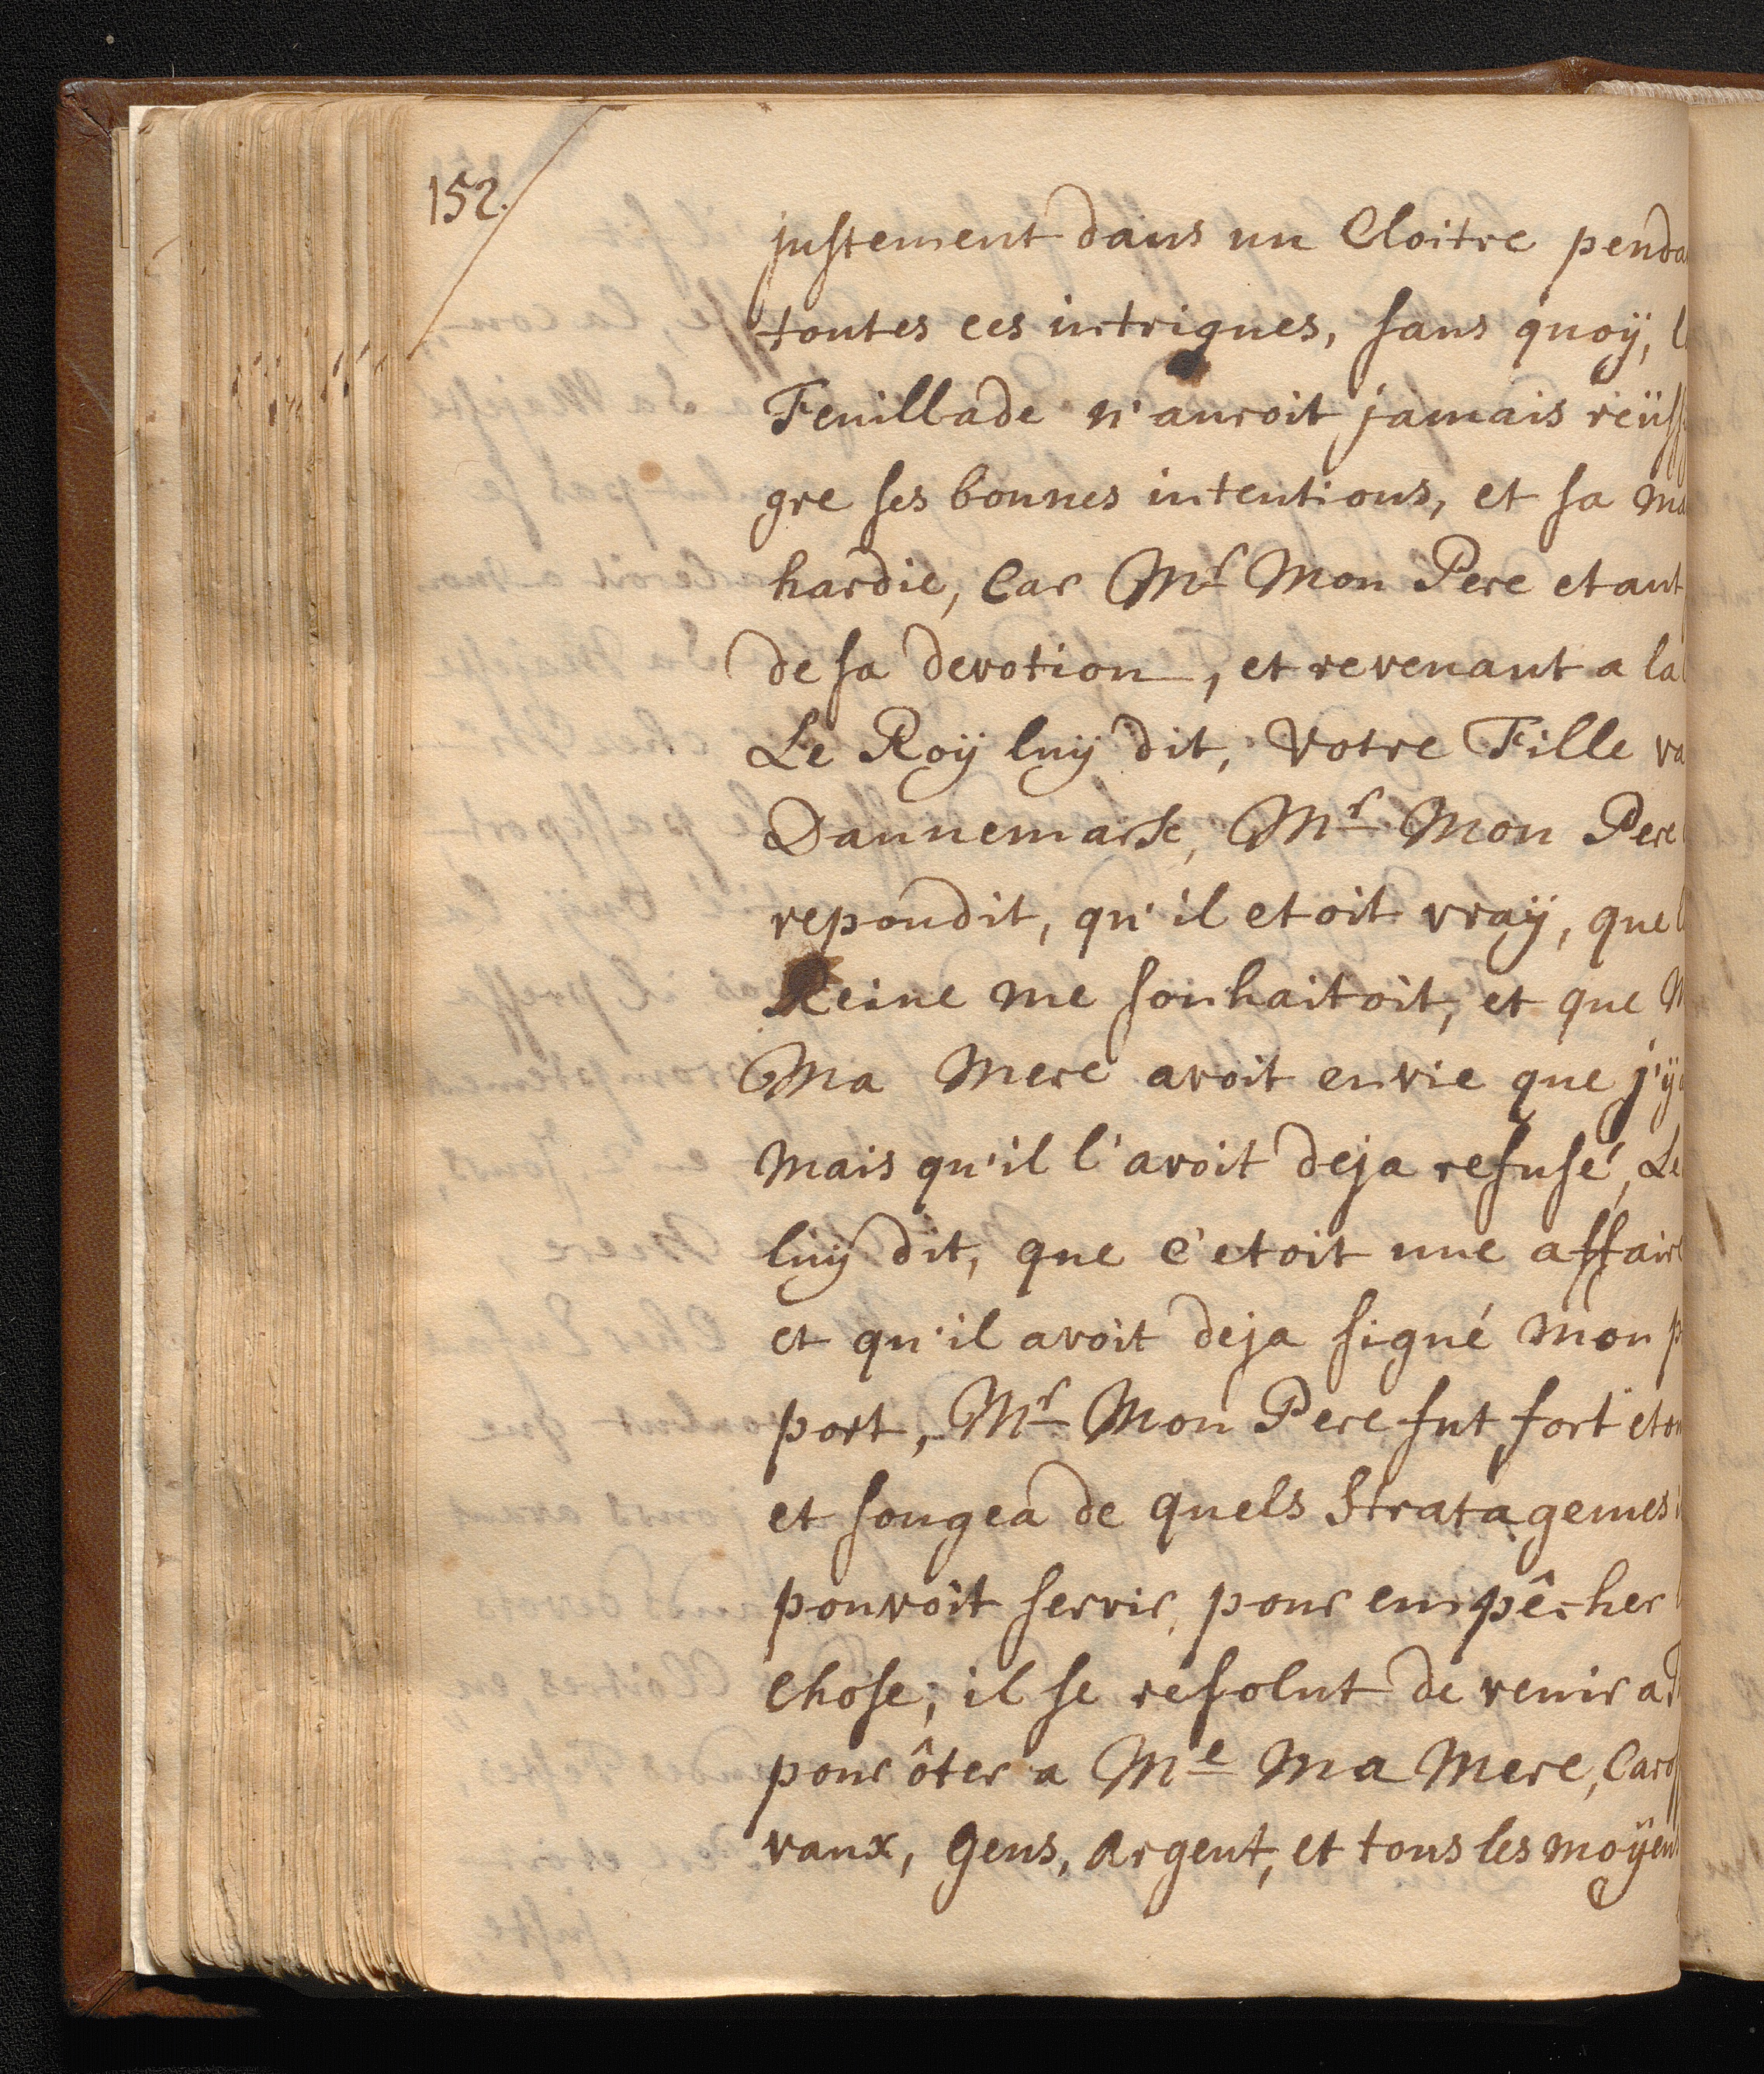 152.
justement dans un Cloitre penda
toutes ces intrigues, sans quoÿ, l
Feuillade n'auroit jamais reüss
gre ses bonnes intentions, et sa ma
hardie, Car Mr Mon Pere etant
de sa devotion, et revenant a la
Le Roÿ luÿ dit, Votre Fille va
Dannemarck, Mr Mon Pere
repondit, qu'il etoit vraÿ, que l
Reine me souhaitoit, et que M
Ma Mere avoit envie que j'ÿ
mais qu'il l'avoit deja refusé, Le
luÿ dit, que c'etoit une affaire
et qu'il avoit deja signé mon p
port, Mr Mon Pere fut fort eton
et songea de quels Stratagemes i
pouvoit servir, pour empêcher l
Chose; il se resolut de venir a
pour ôter a Me Ma Mere, Caross
vaux, Gens, Argent, et tous les moÿens